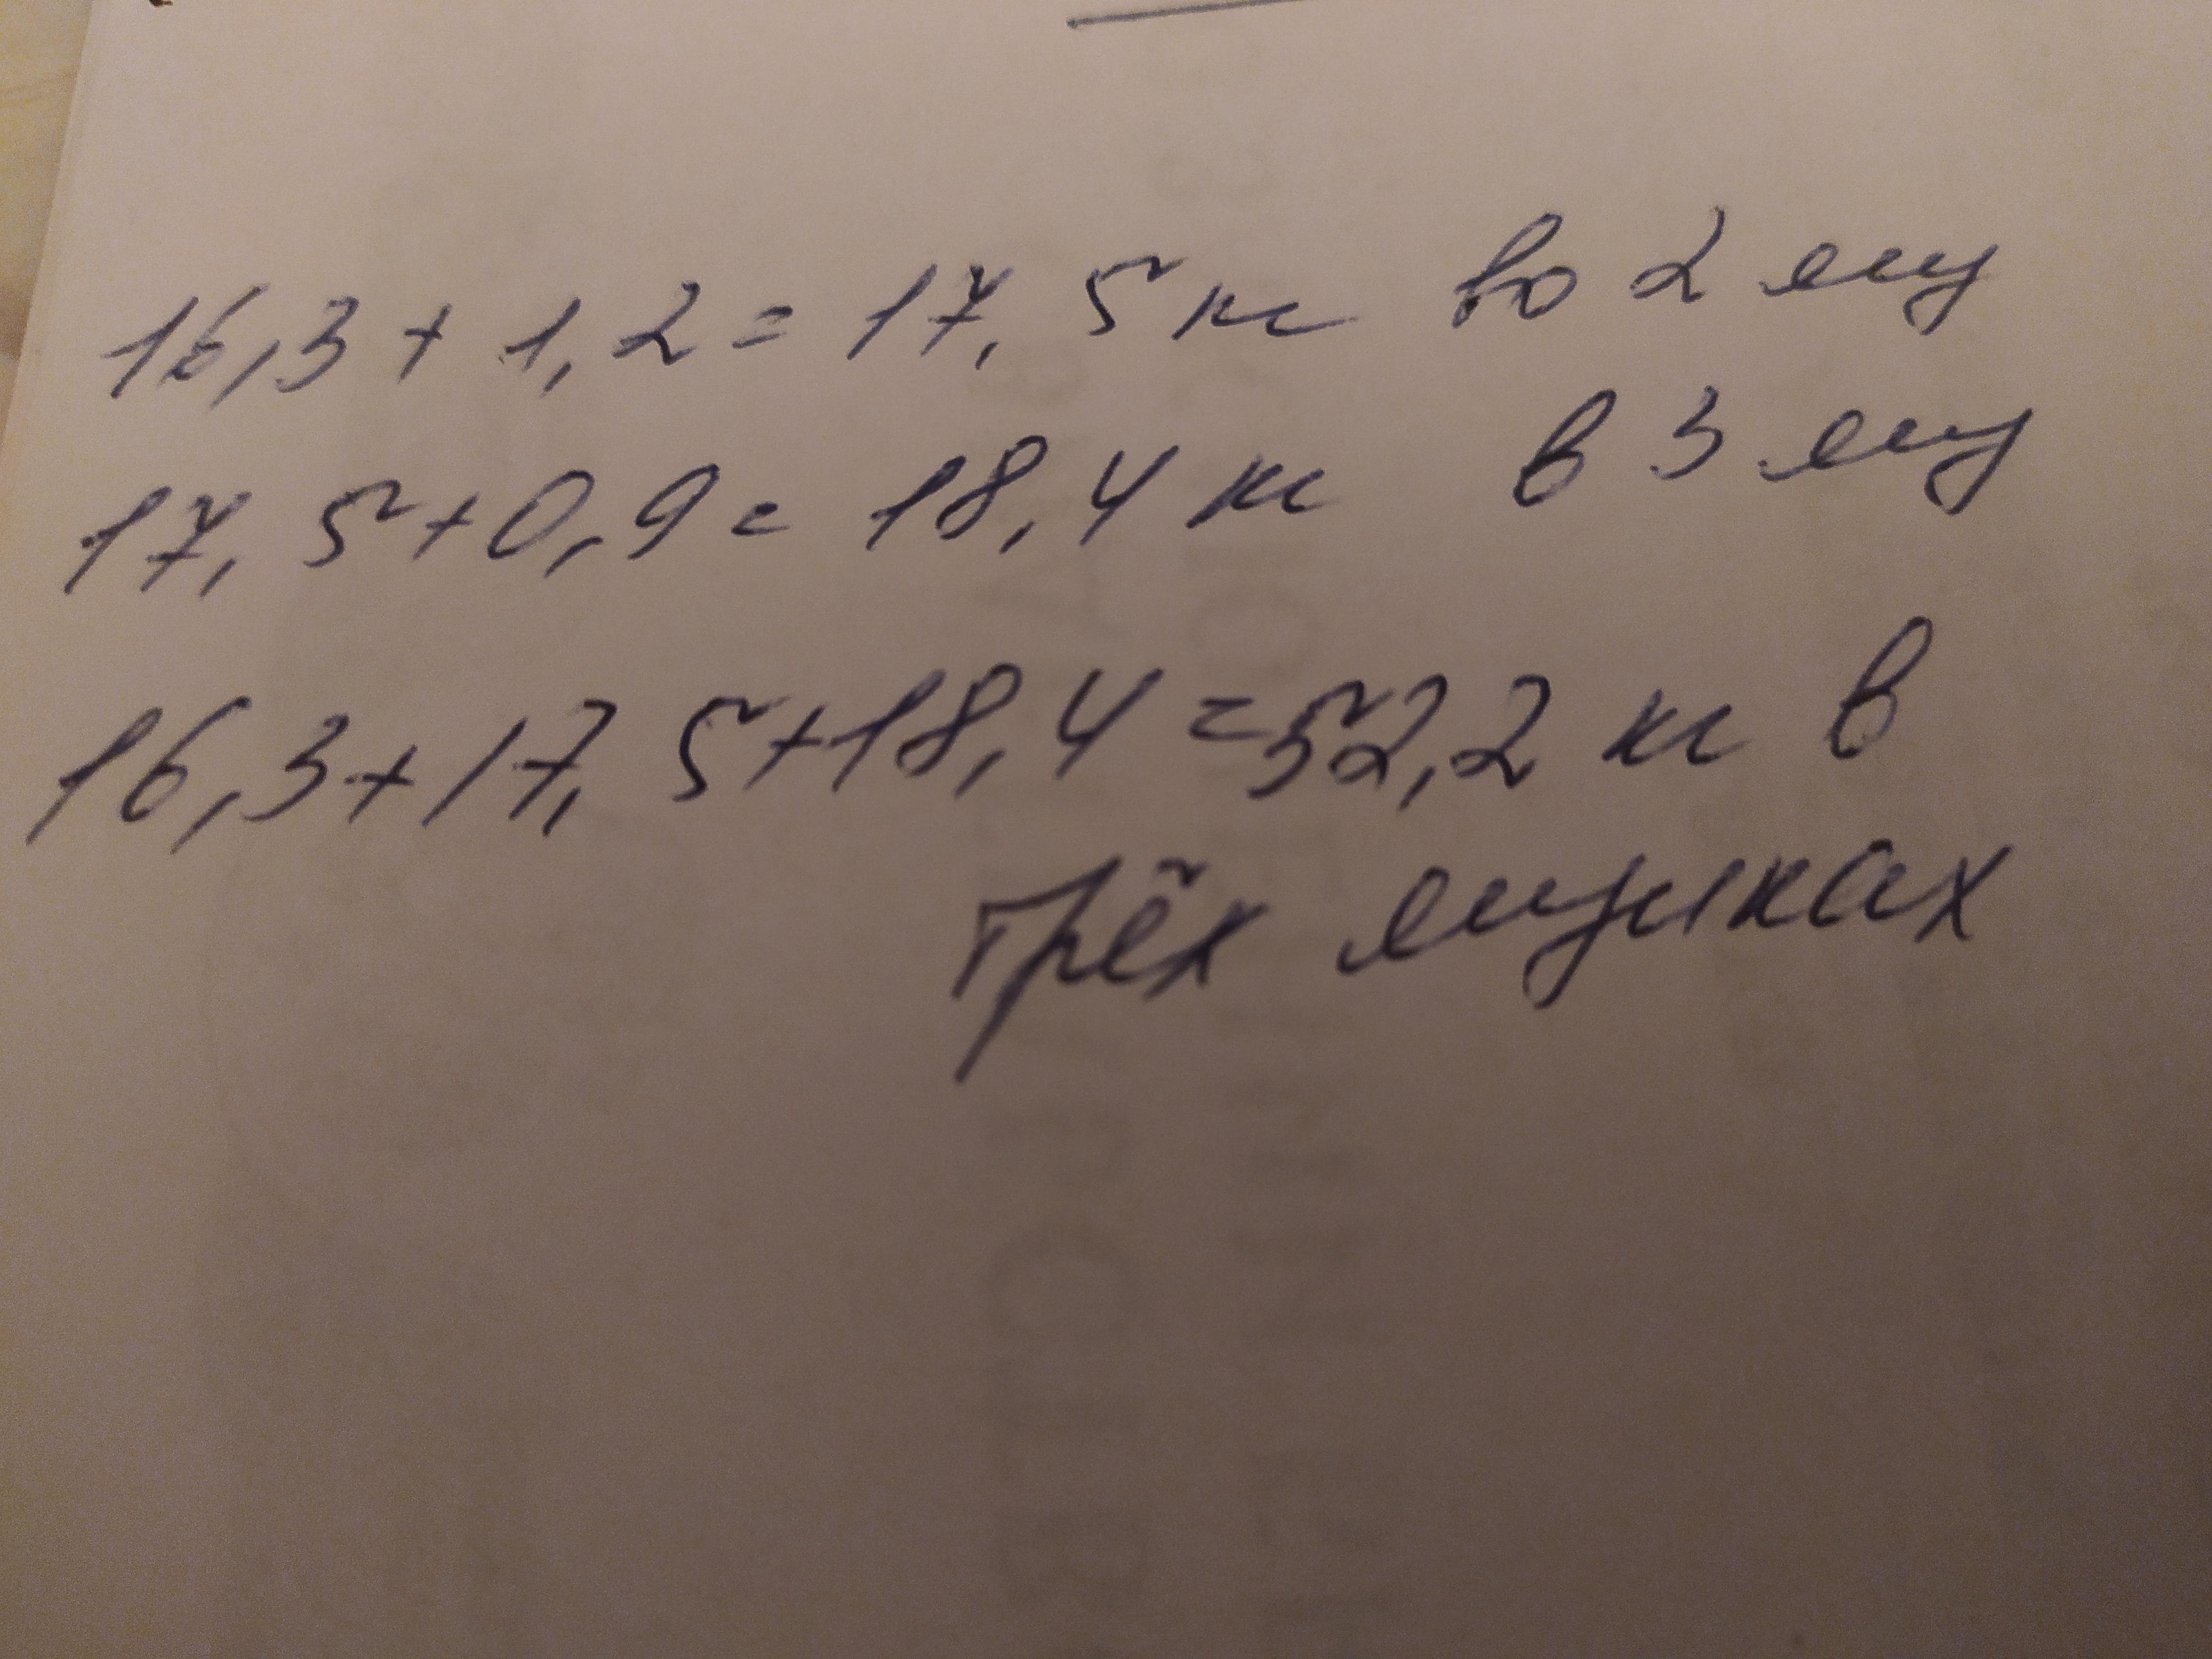 16,3 + 1,2 = 17,5 кг во 2 ящ
17,5 + 0,9 = 18,4 кг в 3 ящ
16,3 + 17,5 + 18,4 = 52,2 кг в
трёх ящиках